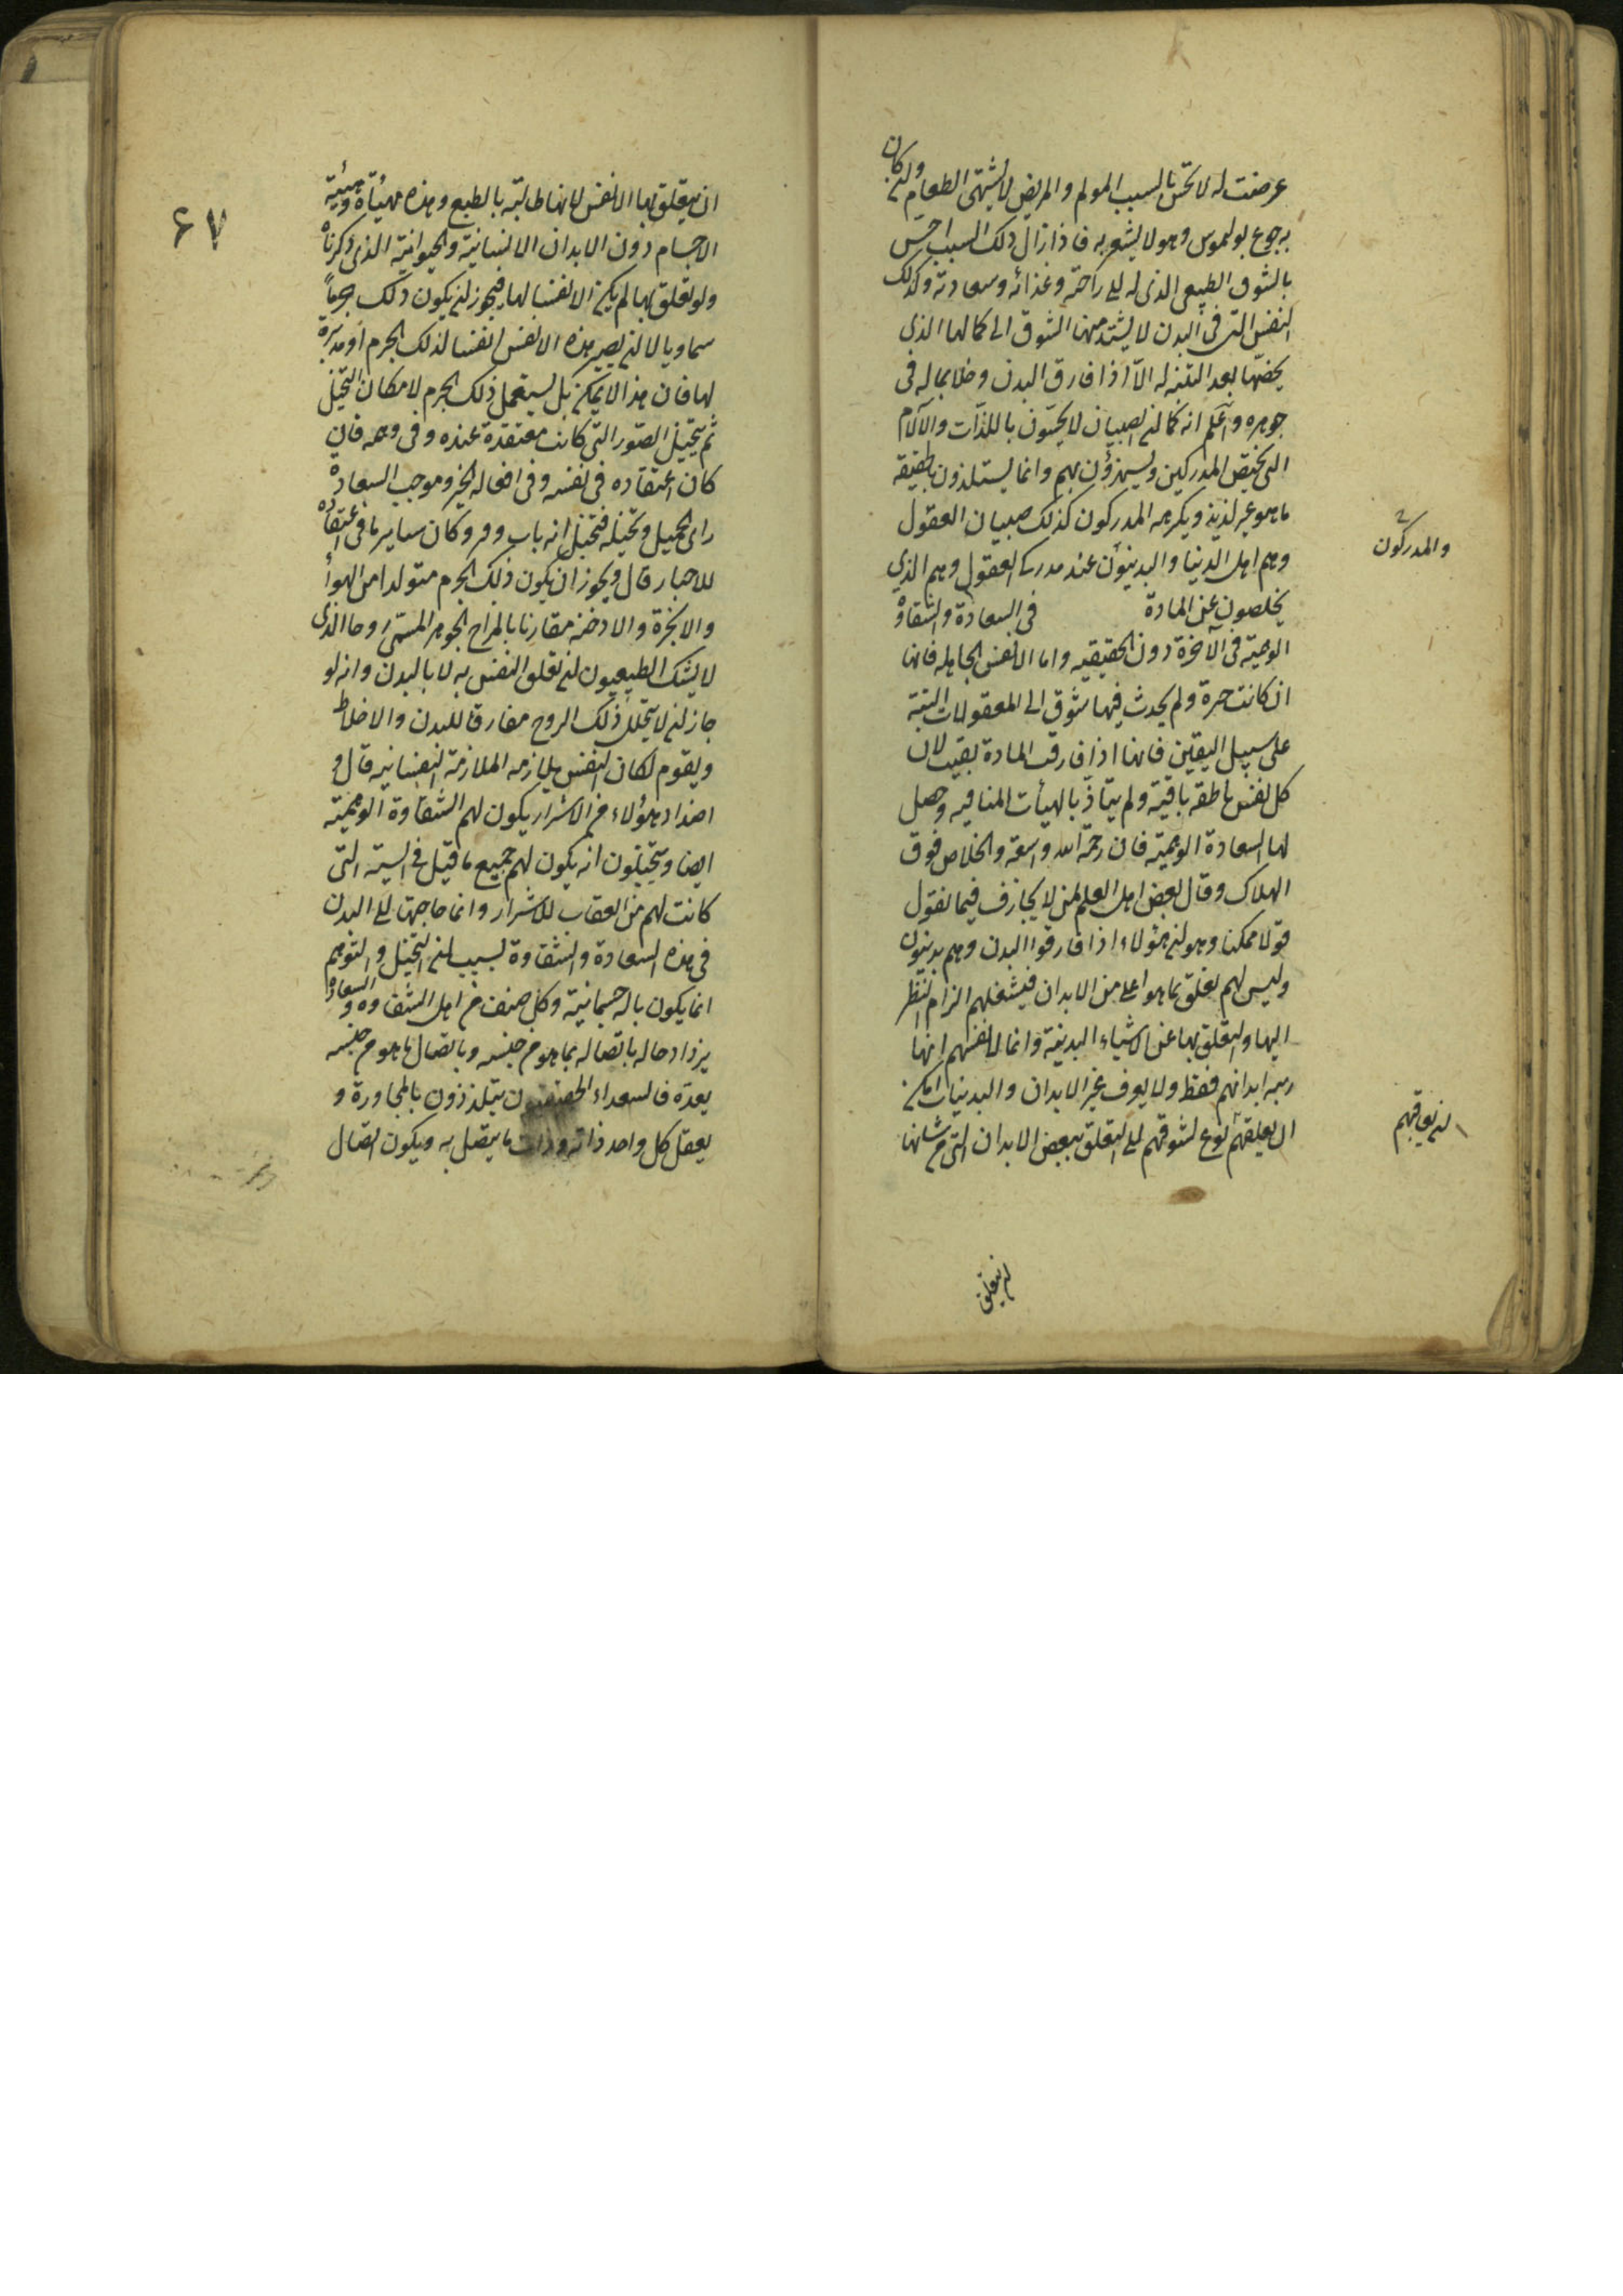 عرضت له لا تحس بالسبب المولم والمريض لا يشتهى الطعام وان كان
به جوع بولموس وهو لا يشعر به فاذا زال ذلك السبب احس
بالشوق الطبيعى الذى له الى راحته وغذائه وسعادته وكذلك
النفس التى فى البدن لا يشتد منها الشوق الى كمالها الذى
يخصها بعد التنبه له الا اذا فارق البدن وخلا بما له فى
جوهره واعلم انه كما ان الصبيان لا يحسون باللذات والآلام
التى يختص المدركين ويستهزؤن بهم وانما يستلذون بالحقيقه
ما هو غير لذيذ ويكرهه المدركون كذلك صبيان العقول
وهم اهل الدنيا والبدنيون عند مدركى العقول وهم الذين
يخلصون عن المادة فى السعادة والشقاوة
الوهمية فى الآخرة دون الحقيقيه واما الانفس الجاهله فانها
ان كانت خيرة ولم يحدث فيها شوق الى المعقولات البتة
على سبيل اليقين فانها اذا فارقت المادة بقيت لان
كل نفس ناطقه باقية ولم يتاذ بالهيأت المنافيه وحصل
لها السعادة الوهمية فان رحمة الله واسعة والخلاص فوق
الهلاك وقال بعض اهل العلم ممن لا يجازف فيما نقول
قولا ممكنا وهو ان هؤلاء اذا فارقوا البدن وهم بدنيون
وليس لهم تعلق بما هو اعلى من الابدان فيشغلهم الزام النظر
اليها والتعلق بها عن الاشياء البدنية وانما لانفسهم انها
زينة ابدانهم فقط ولا يعرف غير الابدان والبدنيات امكن
ان يعلقهم نوع تشوقهم الى التعلق ببعض الابدان التى من شانها
والمدركون
ان يعلقهم
ان يتعلق
۶۷
ان يتعلق بها الانفس لانها طالبة بالطبع وهذه مهيأة هيئة
الاجسام دون الابدان الانسانية والحيوانية الذى ذكرناه
ولو تعلق بها لم يكن الا نفسا لها فيجوز ان يكون ذلك جرما
سماويا لا ان يصير هذه الانفس انفسا لذلك الجرم او مدبرة
لها فان هذا لا يمكن بل يستعمل ذلك الجرم لامكان التخيل
ثم يتخيل الصور التى كانت معتقدة عنده وفى وهمه فان
كان اعتقاده فى نفسه وفى افعاله الخير وموجب السعادة
راى الجميل وتخيله فيتخيل انه مات وقبر وكان ساير ما فى اعتقاده
للاخيار قال ويجوز ان يكون ذلك الجرم متولدا من الهواء
والابخرة والادخنه مقارنا بالمزاج الجوهر المسمى روحا الذى
لا يشك الطبيعيون ان تعلق النفس به لا بالبدن وانه لو
جاز ان لا يتحلل ذلك الروح مفارقا للبدن والاخلاط
ويقوم لكان النفس يلازمه الملازمة النفسانيه قال و
اضداد هؤلاء من الاشرار يكون لهم الشقاوة الوهمية
ايضا ويتخيلون انه يكون لهم جميع ما قيل فى السنة التى
كانت لهم من العقاب للاشرار وانما حاجتها الى البدن
فى هذه السعادة والشقاوة بسبب ان التخيل والتوهم
انما يكون بالة جسمانية وكل صنف من اهل الشقاوة والسعادة
يزداد حاله باتصاله بما هو من جنسه وباتصال ما هو من جنسه
بعده فالسعداء الحقيقيون يتلذذون بالمجاورة و
يعقل كل واحد ذاته وذات ما يتصل به ويكون اتصال